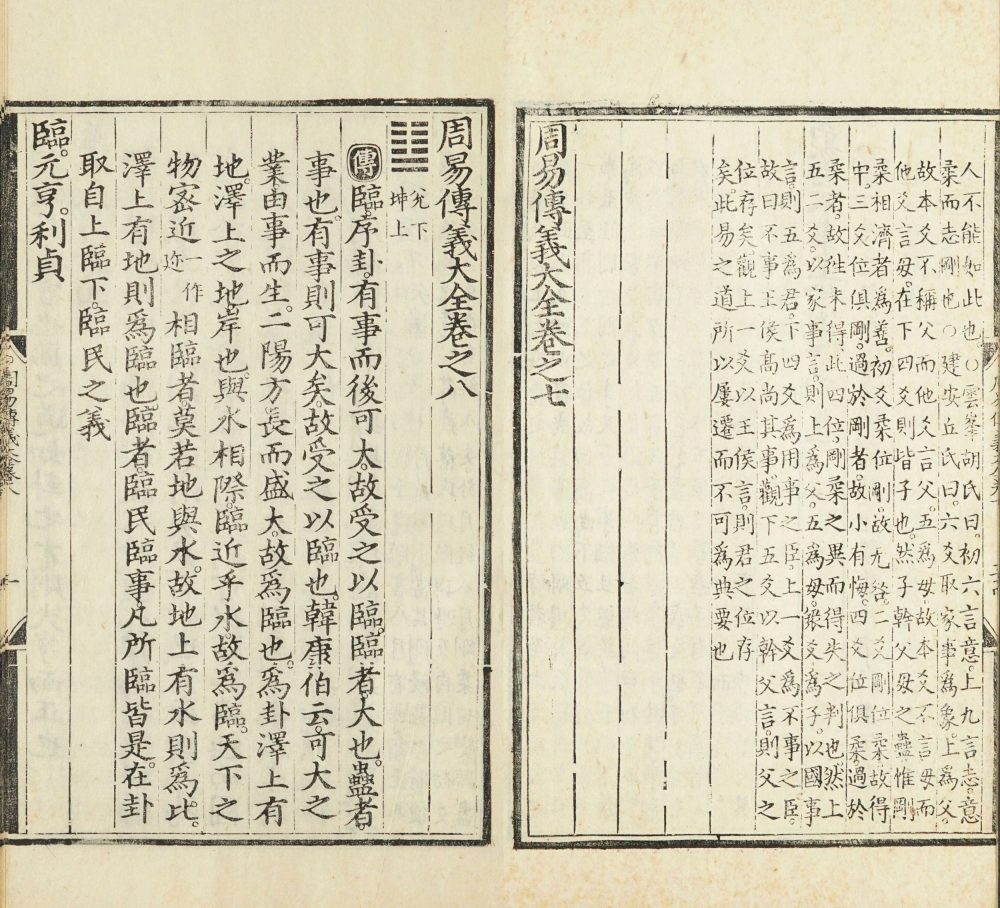 人不能如此也。○雲峯胡氏曰。初六言意。上九言志。意
柔而志剛也○建安丘氏曰。六爻取家事爲象。上爲父。
故本爻不稱父而他爻言父。五爲母故本爻不言母而
他爻言母。在下四爻則皆子也。然子幹父母之蠱惟剛
柔相濟者爲善。初爻柔位剛。故无咎。二爻剛位柔故得
中。三爻位俱剛。過於剛者。故小有悔。四爻位俱柔過於
柔者。故往未得此四位剛柔之異而得失之判也然上
五二爻以家事言。則上爲父。五爲母。衆爻爲子。以國事
言。則五爲君。下四爻爲用事之臣。上一爻爲不事之臣。
故曰不事王侯高尚其事。觀下五爻以幹父言。則父之
位存矣。觀上一爻以王侯言。則君之位存
矣。此易之道所以屢遷而不可爲典要也
周易傳義大全卷之七
周易傳義大全卷之八
兌下
坤上
傳臨。序卦。有事而後可大。故受之以臨。臨者。大也。蠱者。
事也。有事則可大矣。故受之以臨也。韓康伯云。可大之
業由事而生。二陽方長而盛大。故爲臨也。爲卦澤上有
地。澤上之地。岸也。與水相際。臨近乎水。故爲臨。天下之
物密近一作
邇相臨者。莫若地與水。故地上有水則爲比。
澤上有地則爲臨也。臨者。臨民臨事凡所臨皆是。在卦
取自上臨下。臨民之義
臨。元亨。利貞
周易傳義大全卷八
一